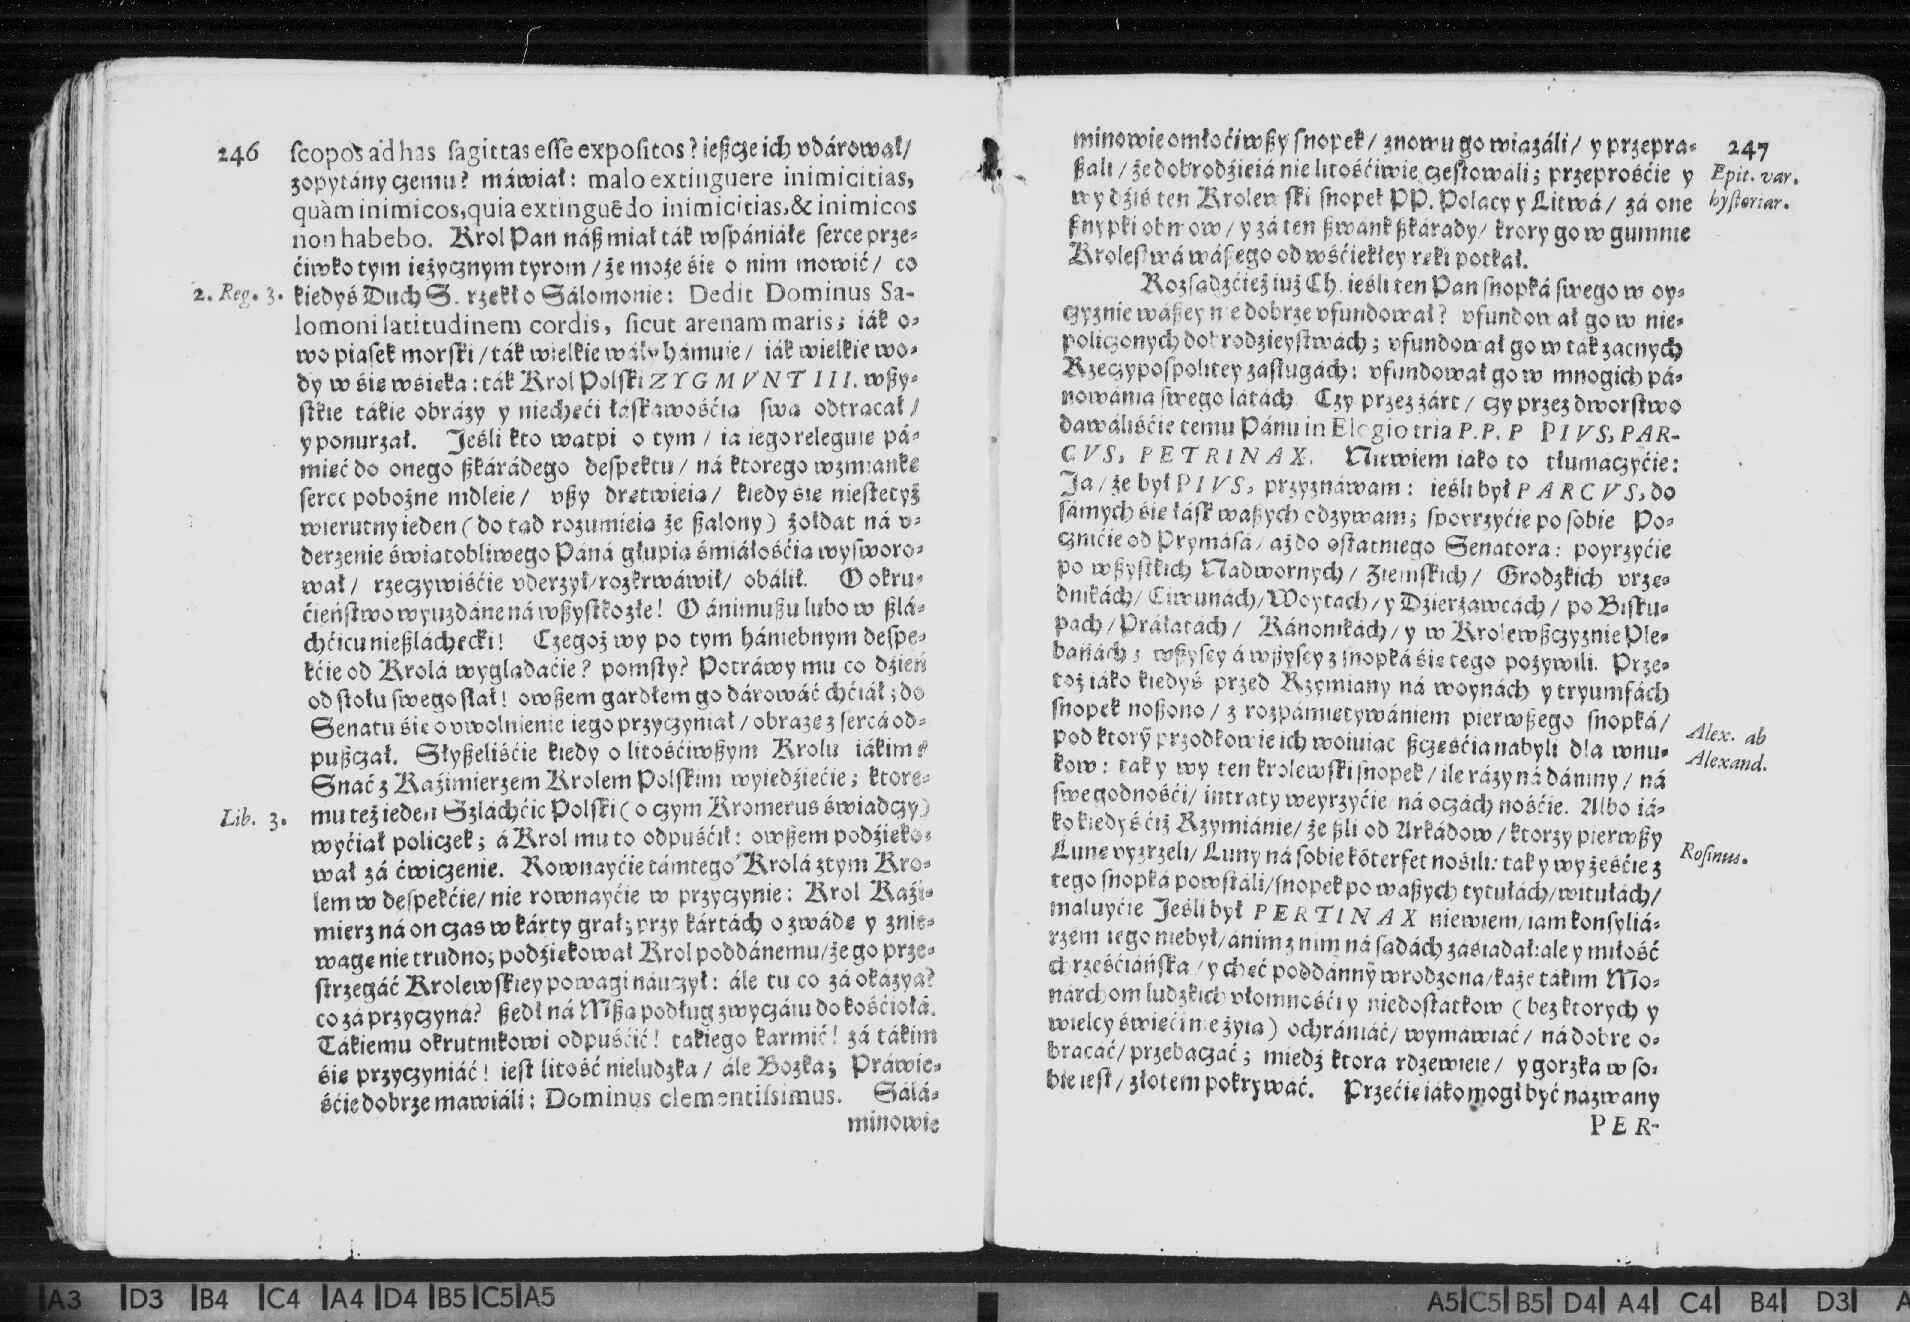 246
scopos ad has sagittas esse expositos? ieszcze ich vdárował/
zopytány czemu? máwiał: malo extinguere inimicitias,
quàm inimicos, quia extinguēdo inimicitias, & inimicos
non habebo. Krol Pan nász miał ták wspániáłe serce prze-
ćiwko tym ieżycznym tyrom/ że może śie o nim mowić/ co
2. Reg. 3. kiedyś Duch S. rzekł o Sálomonie: Dedit Dominus Sa-
lomoni latitudinem cordis, sicut arenam maris; iák o-
wo piasek morski/ ták wielkie wáły hámuie/ iák wielkie wo-
dy w śię wsięka: ták Krol Polski ZYGMVNT III. wszy-
stkie tákie obrázy y niechęći łáskáwośćią swą odtrącał/
y ponurzał. Jeśli kto wątpi o tym/ ia iego releguię pá-
mięć do onego szkárádego despektu/ ná ktorego wzmiankę
serce pobożne mdleie/ vszy drętwieią/ kiedy się niestetyż
wierutny ieden (do tąd rozumieią że szalony) żołdat ná v-
derzenie świątobliwego Páná głupią śmiáłośćią wysworo-
wał/ rzeczywiśćie vderzył/ rozkrwáwił/ obálił. O okru-
ćieństwo wyuzdáne ná wszystko złe! O ánimuszu lubo w szlá-
chćicu nieszláchecki! Czegoż wy po tym hániebnym despe-
kćie od Krolá wyglądaćie? pomsty? Potráwy mu co dźień
od stołu swego słał! owszem gardłem go dárowáć chćiał; do
Senatu śię o vwolnienie iego przyczyniał/ obrazę z sercá od-
puszczał. Słyszeliśćie kiedy o litośćiwszym Krolu iákim?
Snać z Kaźimierzem Krolem Polskim wyiedźiećie; ktore-
Lib. 3. mu też ieden Szláchćic Polski (o czym Kromerus świadczy)
wyćiął policzek; á Krol mu to odpuśćił: owszem podźięko-
wał zá ćwiczenie. Rownayćie támtego Krolá z tym Kro-
lem w despekćie/ nie rownayćie w przyczynie: Krol Kaźi-
mierz ná on czas w kárty grał; przy kártách o zwádę y znie-
wagę nie trudno; podźiękował Krol poddánemu/ że go prze-
strzegáć Krolewskiey powagi náuczył: ále tu co zá okázya?
co zá przyczyná? szedł ná Mszą podług zwyczáiu do kośćiołá.
Tákiemu okrutnikowi odpuśćić! tákiego karmić! zá tákim
śię przyczyniáć! iest litość nieludzka/ ále Bozka; Práwie-
śćie dobrze mawiáli: Dominus clementissimus. Sálá-
minowie
247
minowie omłoćiwszy snopek/ znowu go wiązáli/ y przepra-
száli/ że dobrodźieiá nie litośćiwie częstowáli; przeprośćie y
Epit. var.
wy dźiś ten Krolewski snopek PP. Polacy y Litwá/ zá one
hystoriar.
knypki obrow/ y zá ten szwank szkárády/ ktory go w gumnie
Krolestwá wászego od wśćiekłey ręki potkał.
Rozsądzćież iuż Ch. ieśli ten Pan snopká swego w oy-
czyznie wászey nie dobrze vfundował? vfundował go w nie-
policzonych dobrodzieystwách; vfundował go w tak zacnych
Rzeczypospolitey zasługách: vfundował go w mnogich pá-
nowánia swego látách. Czy przez żárt/ czy przez dworstwo
dawáliśćie temu Pánu in Elogio tria P.P.P PIVS, PAR-
CVS, PETRINAX. Nie wiem iako to tłumaczyćie:
Ja/ że był PIVS, przyznáwam: ieśli był PARCVS, do
sámych śię łásk wászych odzywam; spoyrzyćie po sobie Po-
cznićie od Prymásá/ áż do ostatniego Senatorá: poyrzyćie
po wszystkich Nadwornych/ Ziemskich/ Grodzkich vrzę-
dnikách/ Ciwunách/ Woytách/ y Dźierżawcách/ po Bisku-
pách/ Práłatách/ Kánonikách/ y w Krolewszczyznie Ple-
banách; wszyscy á wszyscy z snopká śię tego pożywili. Prze-
toż iáko kiedyś przed Rzymiany ná woynách y tryumfách
snopek noszono/ z rozpámiętywániem pierwszego snopká/
Alex. ab
pod ktorÿ przodkowie ich woiuiąc szczęśćia nabyli dla wnu-
Alexand.
kow: tak y wy ten krolewski snopek/ ile rázy ná dániny/ ná
swe godnośći/ intraty weyrzyćie ná oczách nośćie. Albo iá-
ko kiedyś ćiż Rzymiánie/ że szli od Arkádow/ ktorzy pierwszy
Lunę vyzrzeli/ Luny ná sobie kōterfet nośili: tak y wy żeśćie z
Rosinus.
tego snopká powstáli/ snopek po waszych tytułách/ witułách/
maluyćie Jeśli był PERTINAX niewiem/ iam konsyliá-
rzem iego niebył/ ánim z nim ná sądách zásiadał: ale y miłość
chrześćiáńska/ y chęć poddánnÿ wrodzona/ każe tákim Mo-
nárchom ludzkich vłomnośći y niedostátkow (bez ktorych y
wielcy święći nie żyią) ochrániáć/ wymáwiáć/ ná dobre o-
bracáć/ przebaczáć; miedź ktora rdzewieie/ y gorzka w so-
bie iest/ złotem pokrywáć. Przećię iáko mogł być názwany
PER-